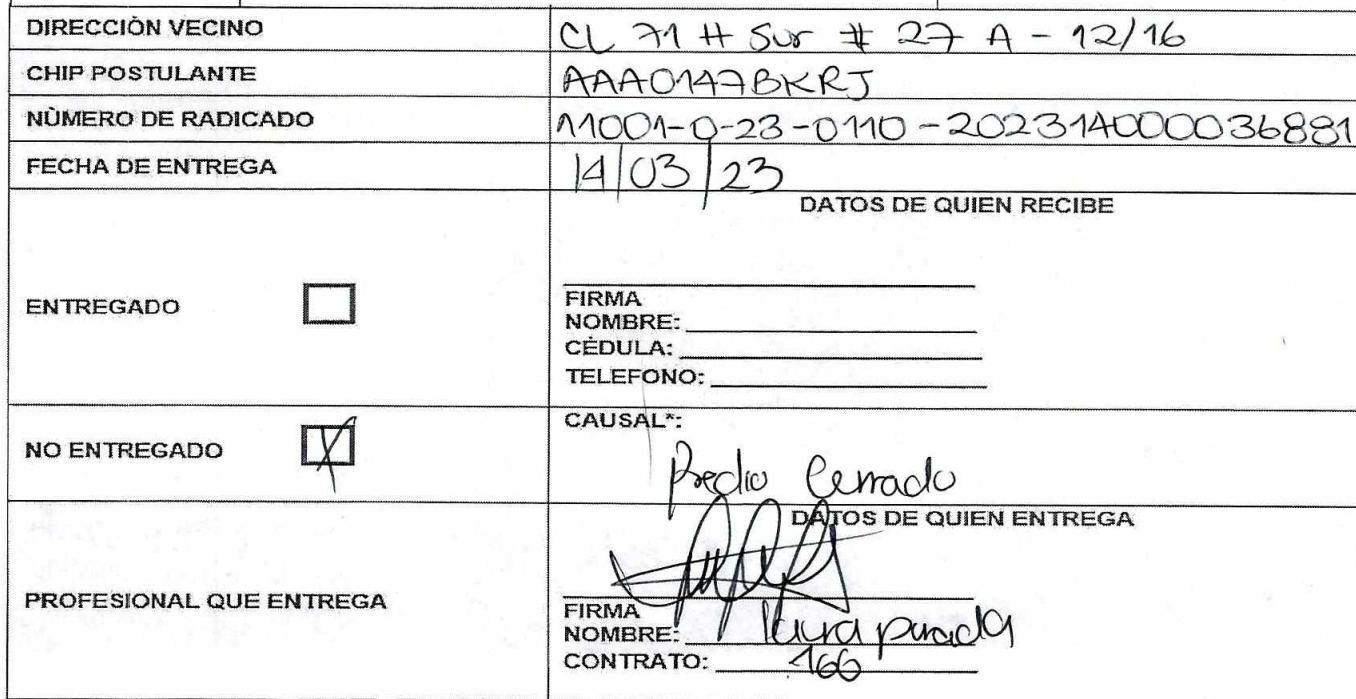 DIRECCIÒN VECINO CL 71 H Sur # 27 A - 12/16
CHIP POSTULANTE AAA0147BKRJ
NÙMERO DE RADICADO 11001-0-23-0110-20231400036881
FECHA DE ENTREGA 14/03/23
DATOS DE QUIEN RECIBE
ENTREGADO
FIRMA
NOMBRE:
CÈDULA:
TELEFONO:
NO ENTREGADO X
CAUSAL*:
Predio Cerrado
DATOS DE QUIEN ENTREGA
PROFESIONAL QUE ENTREGA
FIRMA
NOMBRE: laura parada
CONTRATO: 166